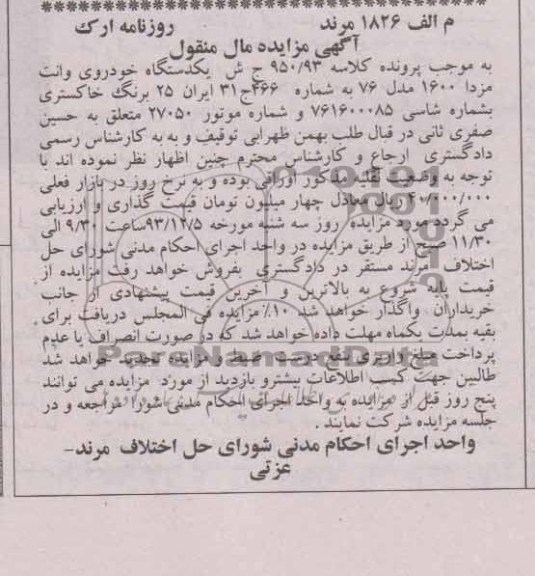 م الف ۱۸۲۶ مرند روزنامه ارک
آگهی مزایده مال منقول
به موجب پرونده کلاسه ۹۵۰/۹۳ ج ش یکدستگاه خودروی وانت
مزدا ۱۶۰۰ مدل ۷۶ به شماره ۴۶۶ج۳۱ ایران ۲۵ برنگ خاکستری
بشماره شاسی ۷۶۱۶۰۰۰۸۵ و شماره موتور ۲۷۰۵۰ متعلق به حسین
صفری ثانی در قبال طلب بهمن ظهرابی توقیف و به به کارشناس رسمی
دادگستری ارجاع و کارشناس محترم چنین اظهار نظر نموده اند با
توجه به وضعیت نقلیه مذکور اوراقی بوده و به نرخ روز در بازار فعلی
۴۰/۰۰۰/۰۰۰ ریال معادل چهار میلیون تومان قیمت گذاری و ارزیابی
می گردد مورد مزایده روز سه شنبه مورخه ۹۳/۱۲/۵ساعت ۹/۳۰ الی
۱۱/۳۰ صبح از طریق مزایده در واحد اجرای احکام مدنی شورای حل
اختلاف مرند مستقر در دادگستری بفروش خواهد رفت مزایده از
قیمت پایه شروع به بالاترین و آخرین قیمت پیشنهادی از جانب
خریداران واگذار خواهد شد ۱۰٪مزایده فی المجلس دریافت برای
بقیه بمدت یکماه مهلت داده خواهد شد که در صورت انصراف یا عدم
پرداخت مبلغ واریزی بنفع دولت ضبط و مزایده تجدید خواهد شد
طالبین جهت کسب اطلاعات بیشترو بازدید از مورد مزایده می توانند
پنج روز قبل از مزایده به واحد اجرای احکام مدنی شورا مراجعه و در
جلسه مزایده شرکت نمایند .
واحد اجرای احکام مدنی شورای حل اختلاف مرند–
عزتی
ParsNamadData